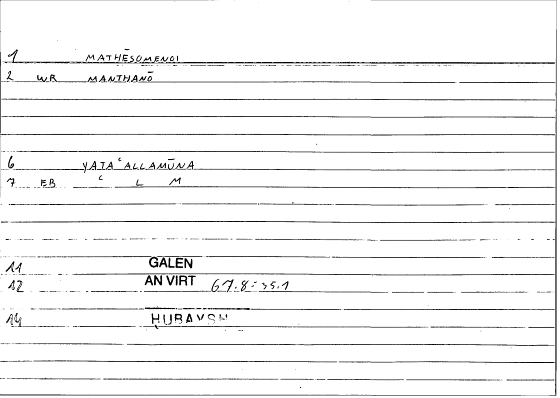 1 MATHĒSOMENOI
2 WR MANTHANŌ
6 YATAʿALLAMŪNA
7 EB ʿ L M
11 GALEN
12 AN VIRT 67.8 = 35.1
14 ḤUBAYSH